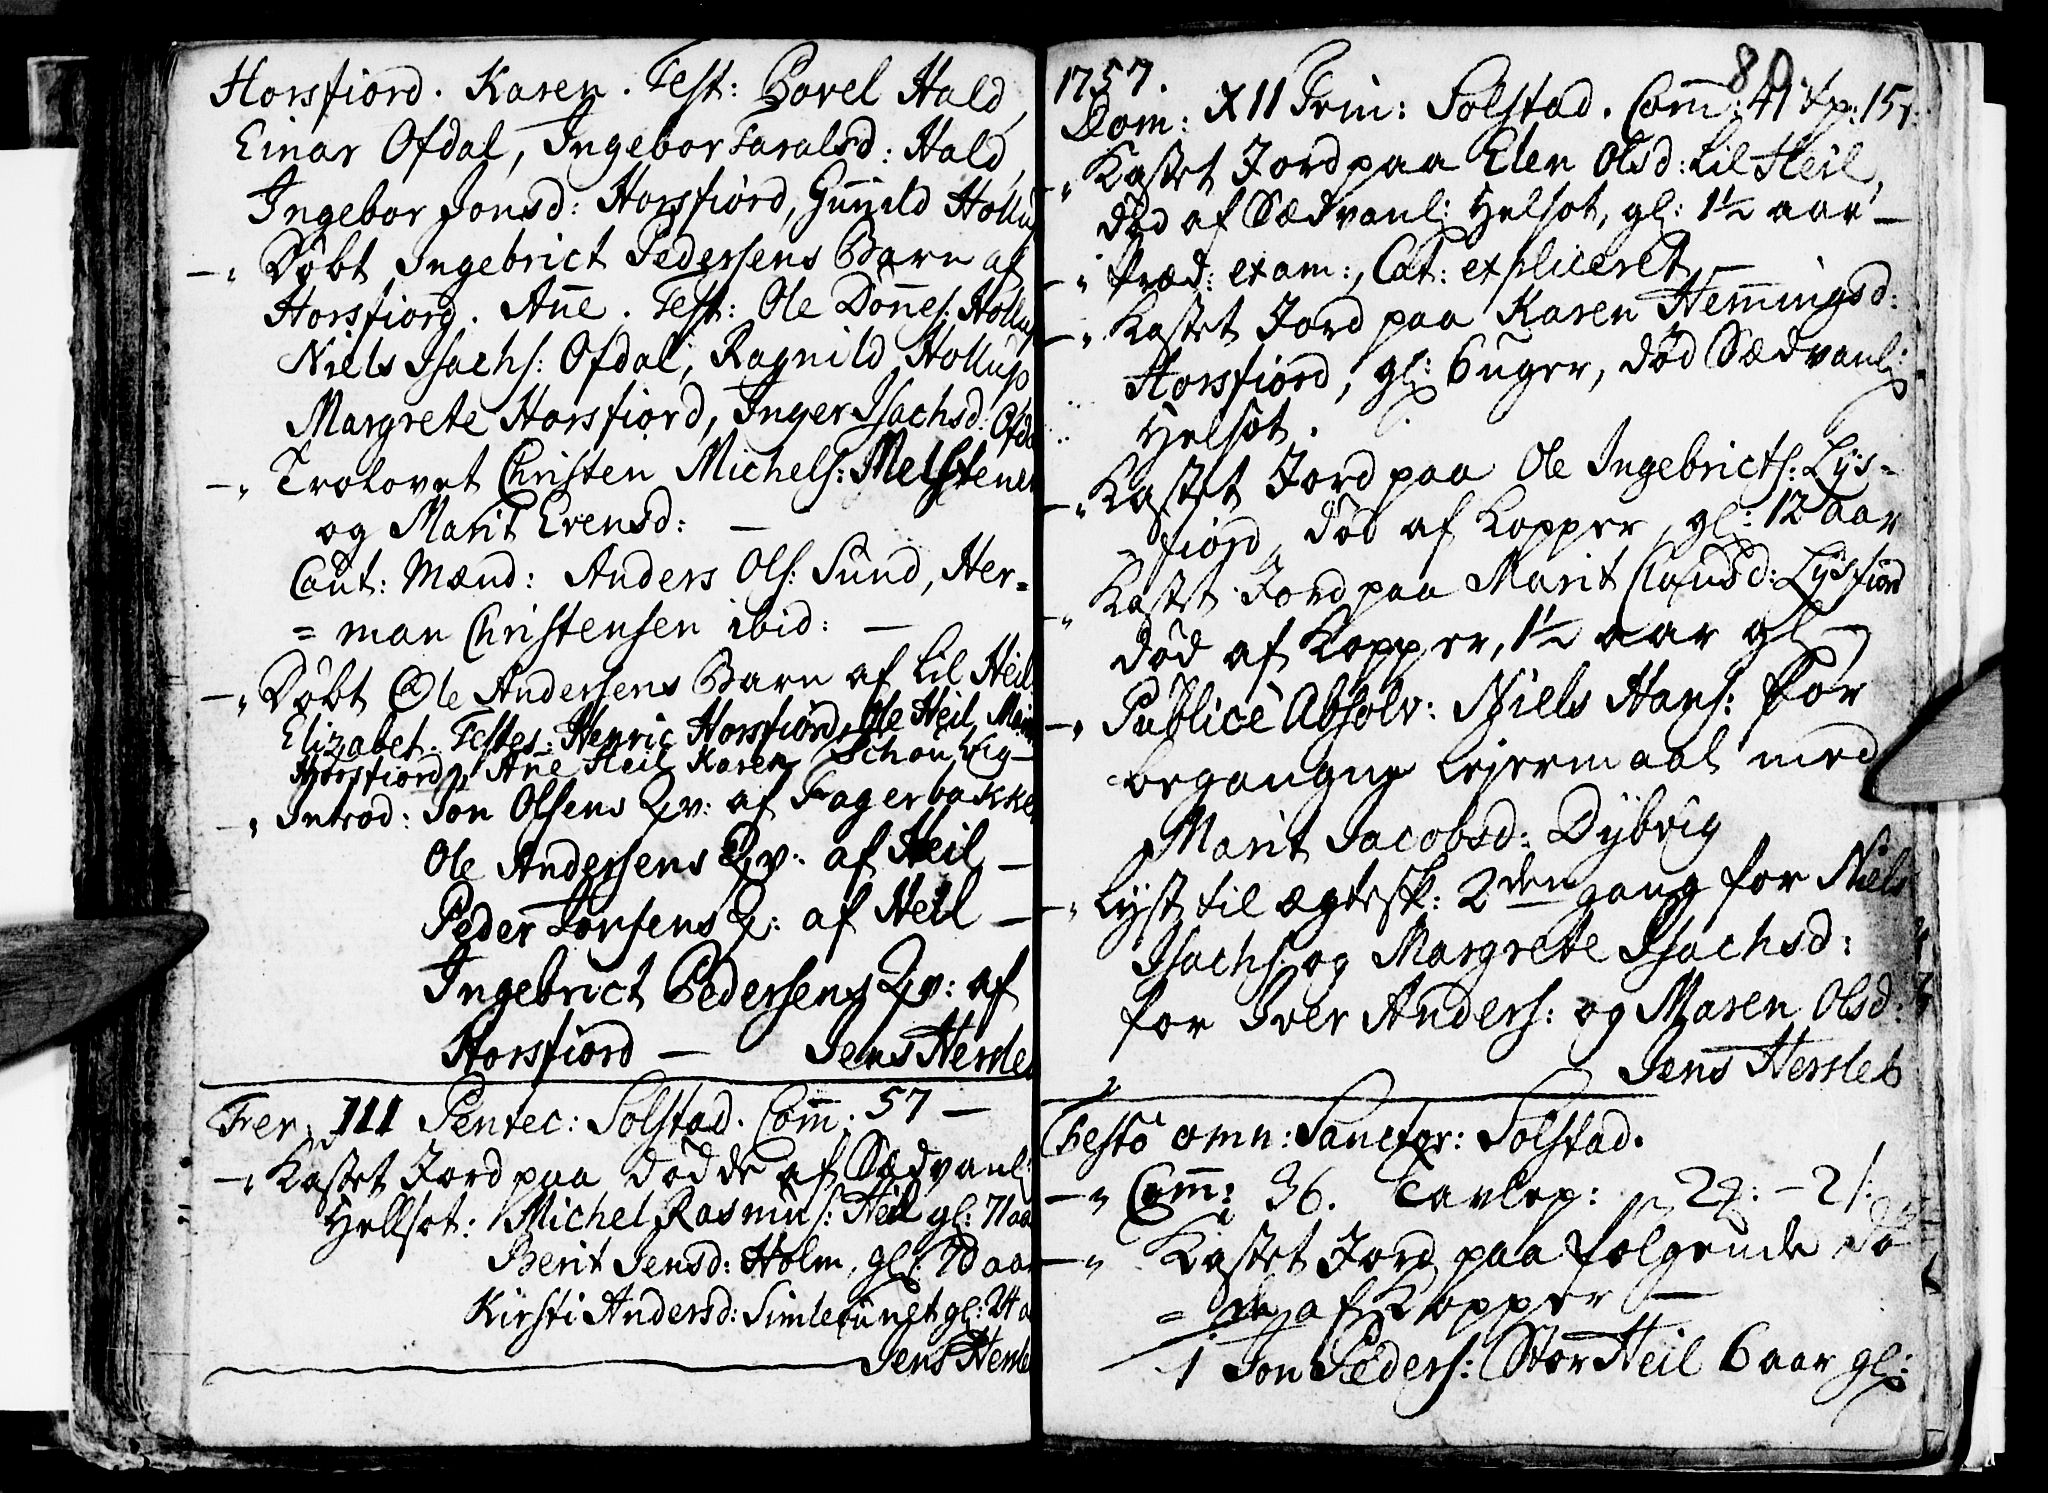 Horsfiord. Karen. Test: Povel Hald,
Einar Ofdal, Ingebor Taralsd: Hald
Ingebor Jonsd: Horsfiord, Gunild Hollup
–„ Døbt Ingebrict Pedersens Barn af
Horsfiord. Ane. Test: Ole Dønnes: Hollup
Niels Isachs: Ofdal, Ragnild Hollup
Margrete Horsfiord, Inger Isachsd: Ofda
–„ Trolovet Christen Michels: Melstenen
og Marit Evensd: –
Caut: Mænd: Anders Ols: Sund, Her=
=man Christensen ibid: –
–„ Døbt Ole Andersens Barn af Lil Heil
Elizabet. Testes: Henric Horsfiord, Ole Heil,
Horsfiord, Ane Heil Karen Schou Vig–
–„ Introd: Jon Olsens Qv: af Fagerbakke
Ole Andersens Qv: af Heil –
Peder Jonsens Q: af Heil –
Ingebrict Pedersens Qv: af
Horsfiord – Jens Hersleb
Fer: III Pentec: Solstad. Com: 57 –
–„ Kastet Jord paa dødde af Sædvanl:
Hellsot: Michel Rasmus: Heil gl: 71 aa
Berit Jensd: Holm, gl: 70 aar
Kirsti Andersd: Simlesunet gl: 24 a
Jens Hersle
80
1757.
Dom: XII Trin: Solstad. Com: 41 Xp: 15
–„ Kastet Jord paa Elen Olsd: Lil Heil,
død af Sædvanl: Helsot, gl: 1½ aar –
–„ Præd: exam:, Cat: expliceret –
–„ Kastet Jord paa Karen Hemingsd:
Horsfiord, gl: 6 uger, død Sædvanl:
Helsot.
–„ Kastet Jord paa Ole Ingebricts: Lys=
fiord, død af Kopper, gl: 12 aar
–„ Kastet Jord paa Marit Clausd: Lysfiord
død af Kopper, 1½ aar gl –
–„ Publicè Absolv: Niels Hans: for
begangne Lejermaal med
Marit Jacobsd: Dybvig
–„ Lyst til ægtesk: 2den gang for Niels
Isachs: og Margrete Isachsd:
for Iver Anders: og Maren Olsd:
Jens Hersleb
Festo omn: Sanctor: Solstad.
–„ Com: 36. Tavlep: 2
–„ Kastet Jord paa følgende dø
=de af Kopper –
1 Jon Peders: Stor Heil 6 aar gl: